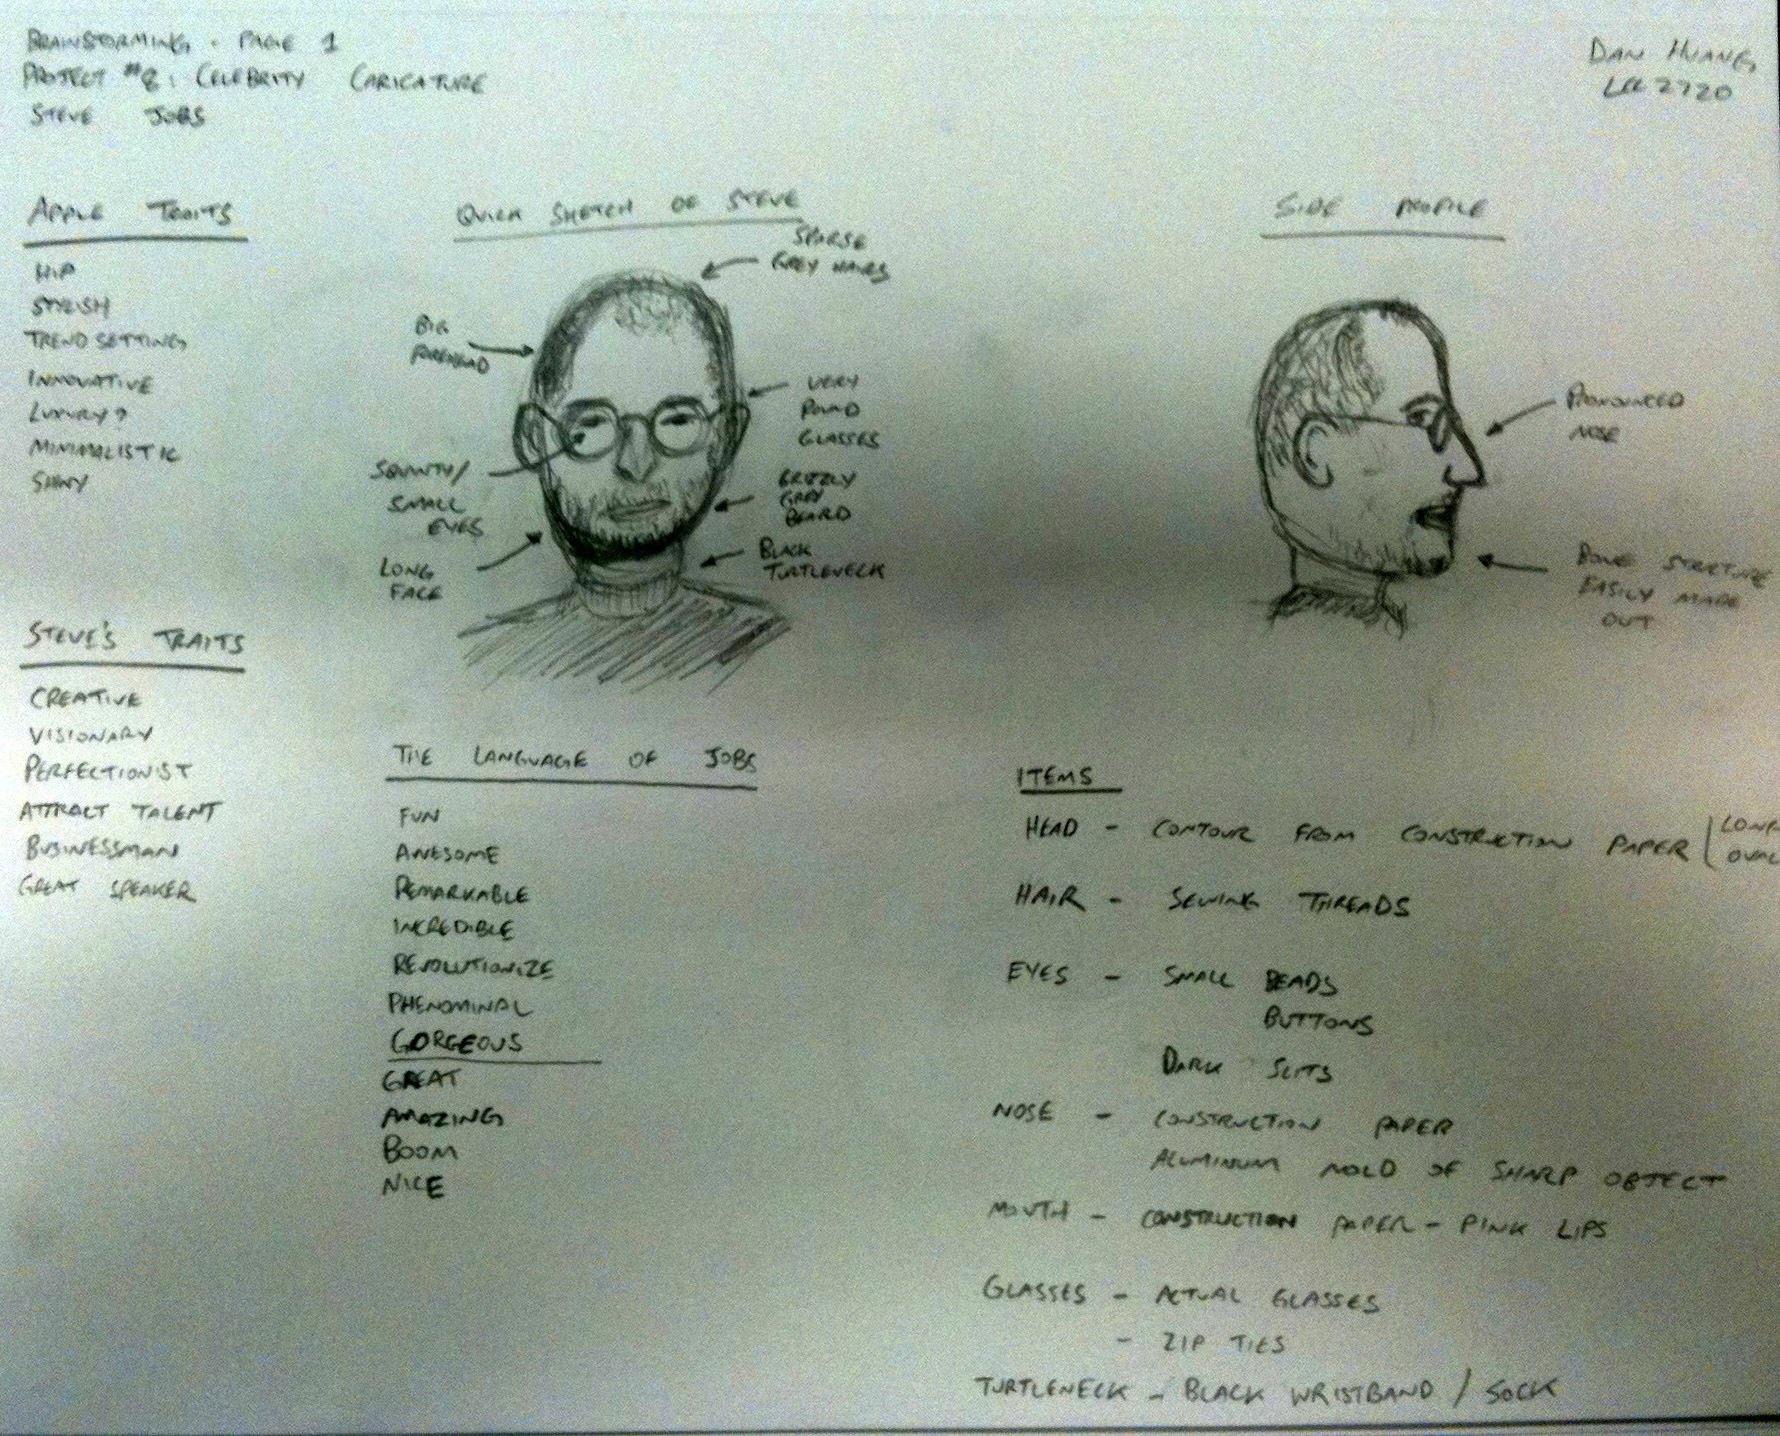 BRAINSTORMING - PAGE 1
PROJECT #2: CELEBRITY CARICATURE
STEVE JOBS
DAN HUANG
2720
APPLE TRAITS
HIP
STYLISH
TREND SETTING
INNOVATIVE
LUXURY?
MINIMALISTIC
SHINY
STEVE'S TRAITS
CREATIVE
VISIONARY
PERFECTIONIST
ATTRACT TALENT
BUSINESSMAN
GREAT SPEAKER
QUICK SKETCH OF STEVE
SPARSE
GREY HAIRS
BIG
FOREHEAD
VERY
ROUND
GLASSES
SQUINTY/
SMALL
EYES
GRIZZLY
GREY
BEARD
LONG
FACE
BLACK
TURTLENECK
SIDE PROFILE
PRONOUNCED
NOSE
BONE STRUCTURE
EASILY MADE
OUT
THE LANGUAGE OF JOBS
FUN
AWESOME
REMARKABLE
INCREDIBLE
REVOLUTIONIZE
PHENOMINAL
GORGEOUS
GREAT
AMAZING
BOOM
NICE
ITEMS
HEAD - CONTOUR FROM CONSTRUCTION PAPER
LONG
OVAL
HAIR - SEWING THREADS
EYES - SMALL BEADS
BUTTONS
DARK SLITS
NOSE - CONSTRUCTION PAPER
ALUMINUM MOLD OF SHARP OBJECT
MOUTH - CONSTRUCTION PAPER - PINK LIPS
GLASSES - ACTUAL GLASSES
- ZIP TIES
TURTLENECK - BLACK WRISTBAND / SOCK